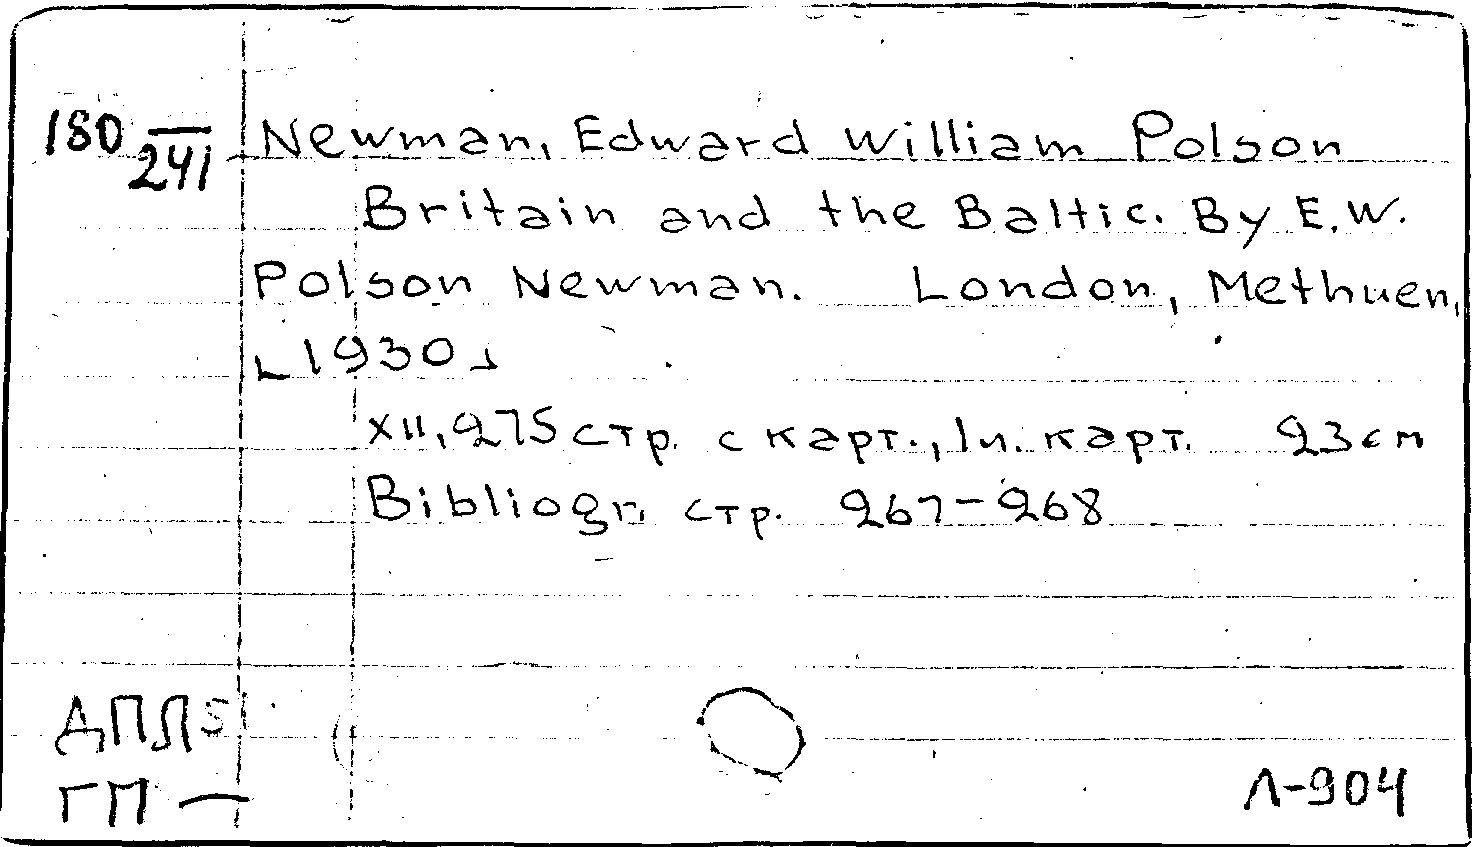 180 241 Newman, Edward William Polson
Britain and the Baltic. By E.W.
Polson Newman. London, Methuen,
[1930]
XII, 275 стр. с карт., 1 л. карт. 23 см
Bibliogr. стр. 267-268
ДПЛ5
ГП —
Л-904